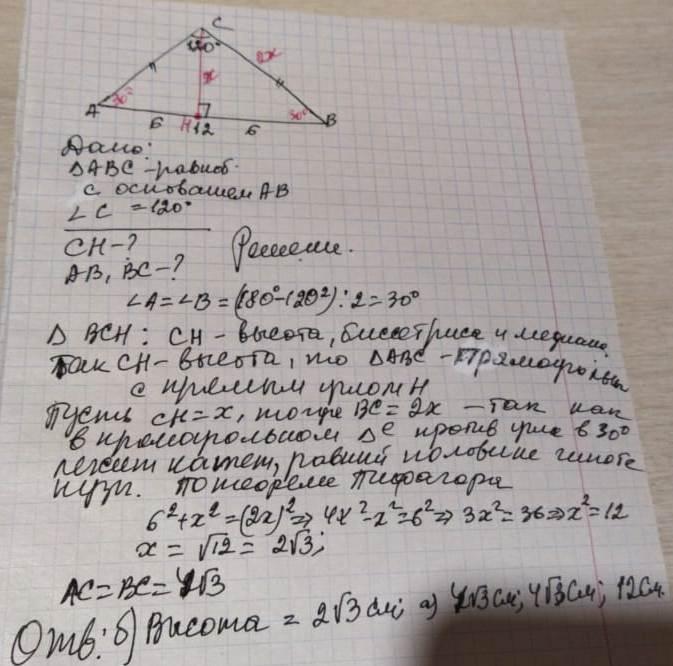 C
120°
2x
x
A
30°
30°
6
H
12
6
B
Дано:
ΔABC - равноб.
с основанием AB
∠C = 120°
CH - ?
Решение.
AB, BC - ?
∠A = ∠B = (180° - 120°) : 2 = 30°
Δ BCH: CH - высота, биссектриса и медиана.
Так CH - высота, то ΔABC - прямоугольн
с прямым углом H
Пусть CH = x, тогда BC = 2x - так как
в прямоугольном Δе против угла в 30°
лежит катет, равный половине гипоте
нузы. По теореме Пифагора
6² + x² = (2x)² ⇒ 4x² - x² = 6² ⇒ 3x² = 36 ⇒ x² = 12
x = √12 = 2√3;
AC = BC = 4√3
Отв: б) Высота = 2√3 см; а) 4√3 см; 4√3 см; 12 см.